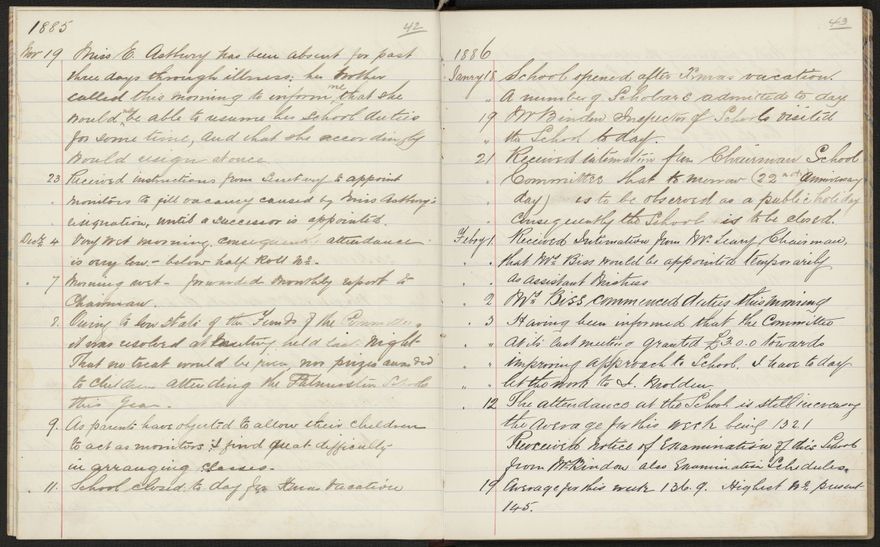 1885
42
Nov 19 Miss E. Astbury has been absent for past
three days through illness; her Mother
called this morning to inform me that she
would be able to resume her school duties
for some time, and that she accordingly
would resign at once
23 Received instructions from Secretary to appoint
monitors to fill vacancy caused by Miss Astbury's
resignation, until a successor is appointed.
Decr 4 Very wet morning, consequent attendance
is very low - below half Roll No.
" 7 Morning wet - forwarded monthly report to
Chairman.
8. Owing to low state of the Funds of the Committee,
it was resolved at meeting held last night
That no treat would be given nor prizes awarded
to children attending the Palmerston Schools
this year.
9. As parents have objected to allow their children
to act as monitors I find great difficulty
in arranging classes.
" 11. School closed to day for Xmas Vacation
43
1886
Janry 18 School opened after Xmas vacation.
" A number of Scholars admitted to day
19 Mr Bindon Inspector of Schools visited
" the School to day.
21 Received intimation from Chairman School
" Committee that to morrow (22nd Anniversary
" day) is to be observed as a public holiday
" consequently the School is to be closed.
Feby 1 Received Intimation from Mr. Leary Chairman,
" that Mrs. Biss would be appointed temporarily
" as assistant Mistress
" 2 Mrs Biss commenced duties this morning
" 3 Having been informed that the Committee
" at its last meeting granted £3.0.0 towards
" improving approach to School, I have to day
" let the work to
" 12 The attendance at the School is still increasing
the Average for this week being 132.1
Received Notice of Examination of this School
from Mr Bindon also Examination Schedules.
19 Average for this week 136.9. Highest No. present
145.